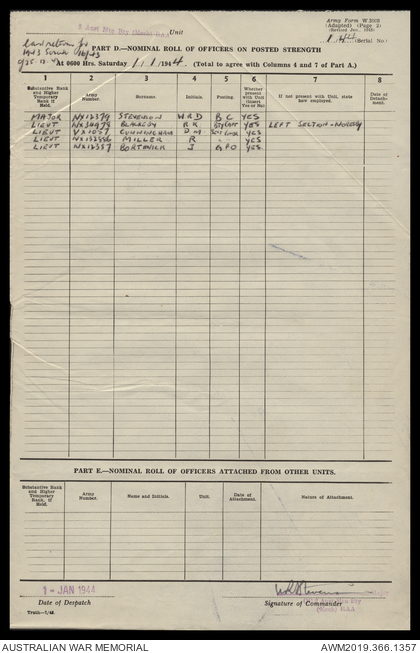 Army Form W.3008
(Adapted) (Page 2)
2 Aust Mtn Bty (
Unit
1/44 (Serial No.)
PART D.—NOMINAL ROLL OF OFFICERS ON POSTED STRENGTH
At 0600 Hrs. Saturday 1/1/1944. (Total to agree with Columns 4 and 7 of Part A.)
1 2 3 4 5 6 7 8
Substantive Rank and Higher Temporary Rank if Held. Army Number. Surname. Initials. Posting. Whether present with Unit (Insert Yes or No) If not present with Unit, state how employed. Date of Detachment.
MAJOR NX12379 STEVENSON W R D B C YES
LIEUT NX34978 R R YES LEFT SECTION - MORESBY
LIEUT VX1057 CUNNINGHAM D M YES
LIEUT MILLER R YES
LIEUT NX12357 BORTHWICK J GPO YES
PART E.—NOMINAL ROLL OF OFFICERS ATTACHED FROM OTHER UNITS.
Substantive Rank and Higher Temporary Rank, if Held. Army Number. Name and Initials. Unit. Date of Attachment. Nature of Attachment.
1 - JAN 1944
Date of Despatch
Signature of Commander
AUSTRALIAN WAR MEMORIAL
AWM2019.366.1357